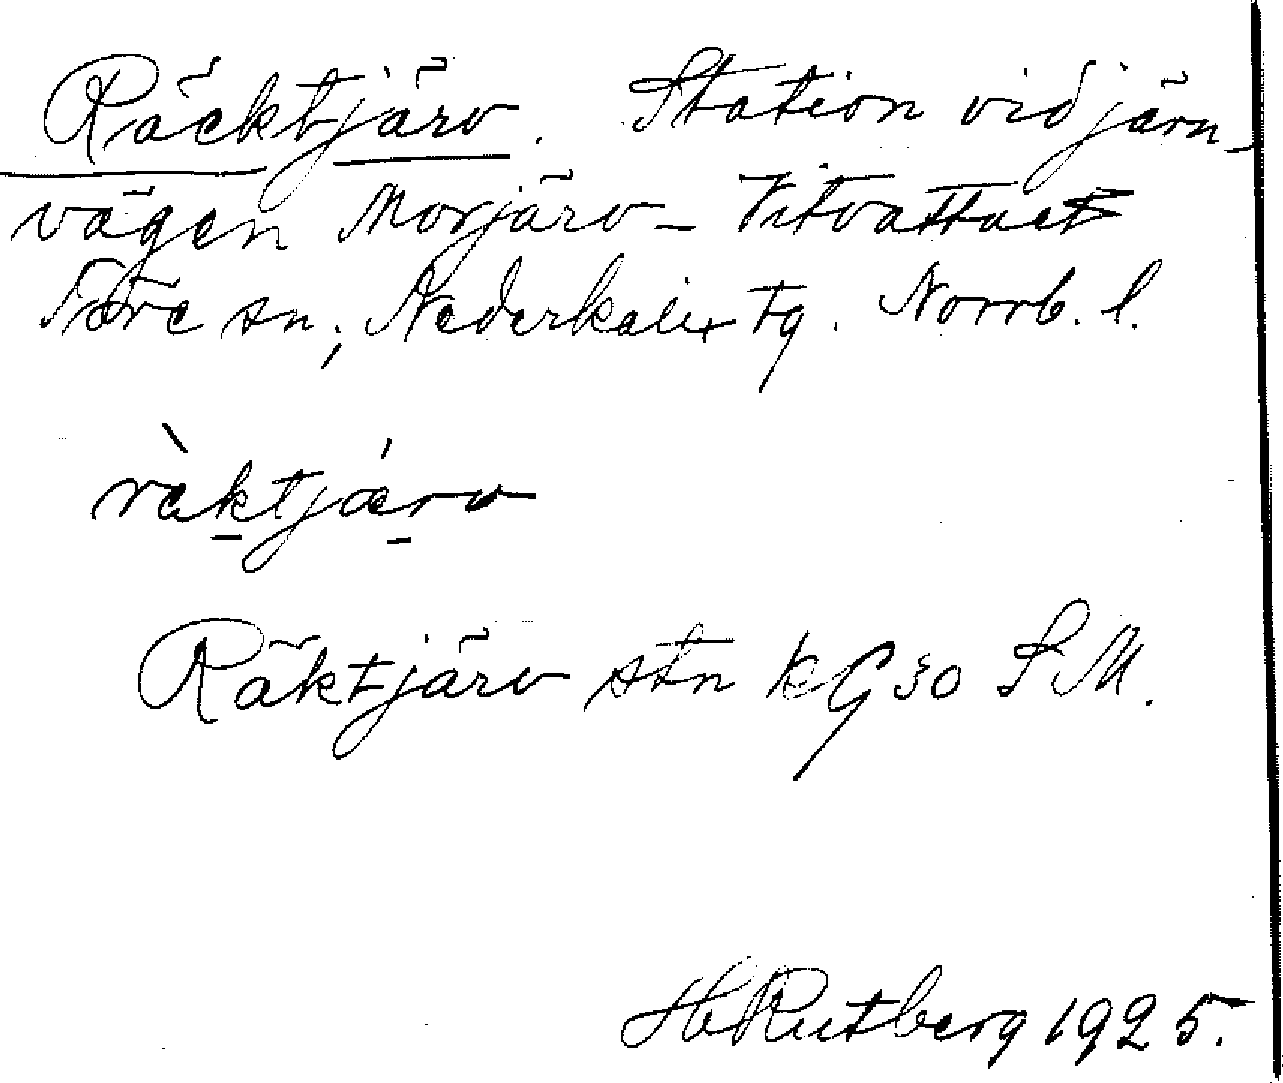 Räcktjärv. Station vid järn-
vägen Morjärv – Vitvattnet
Töre sn, Nederkalix tg. Norrb. l.
ràktjárv
Räktjärv stn KG 30 S.M.
H Rutberg 1925.